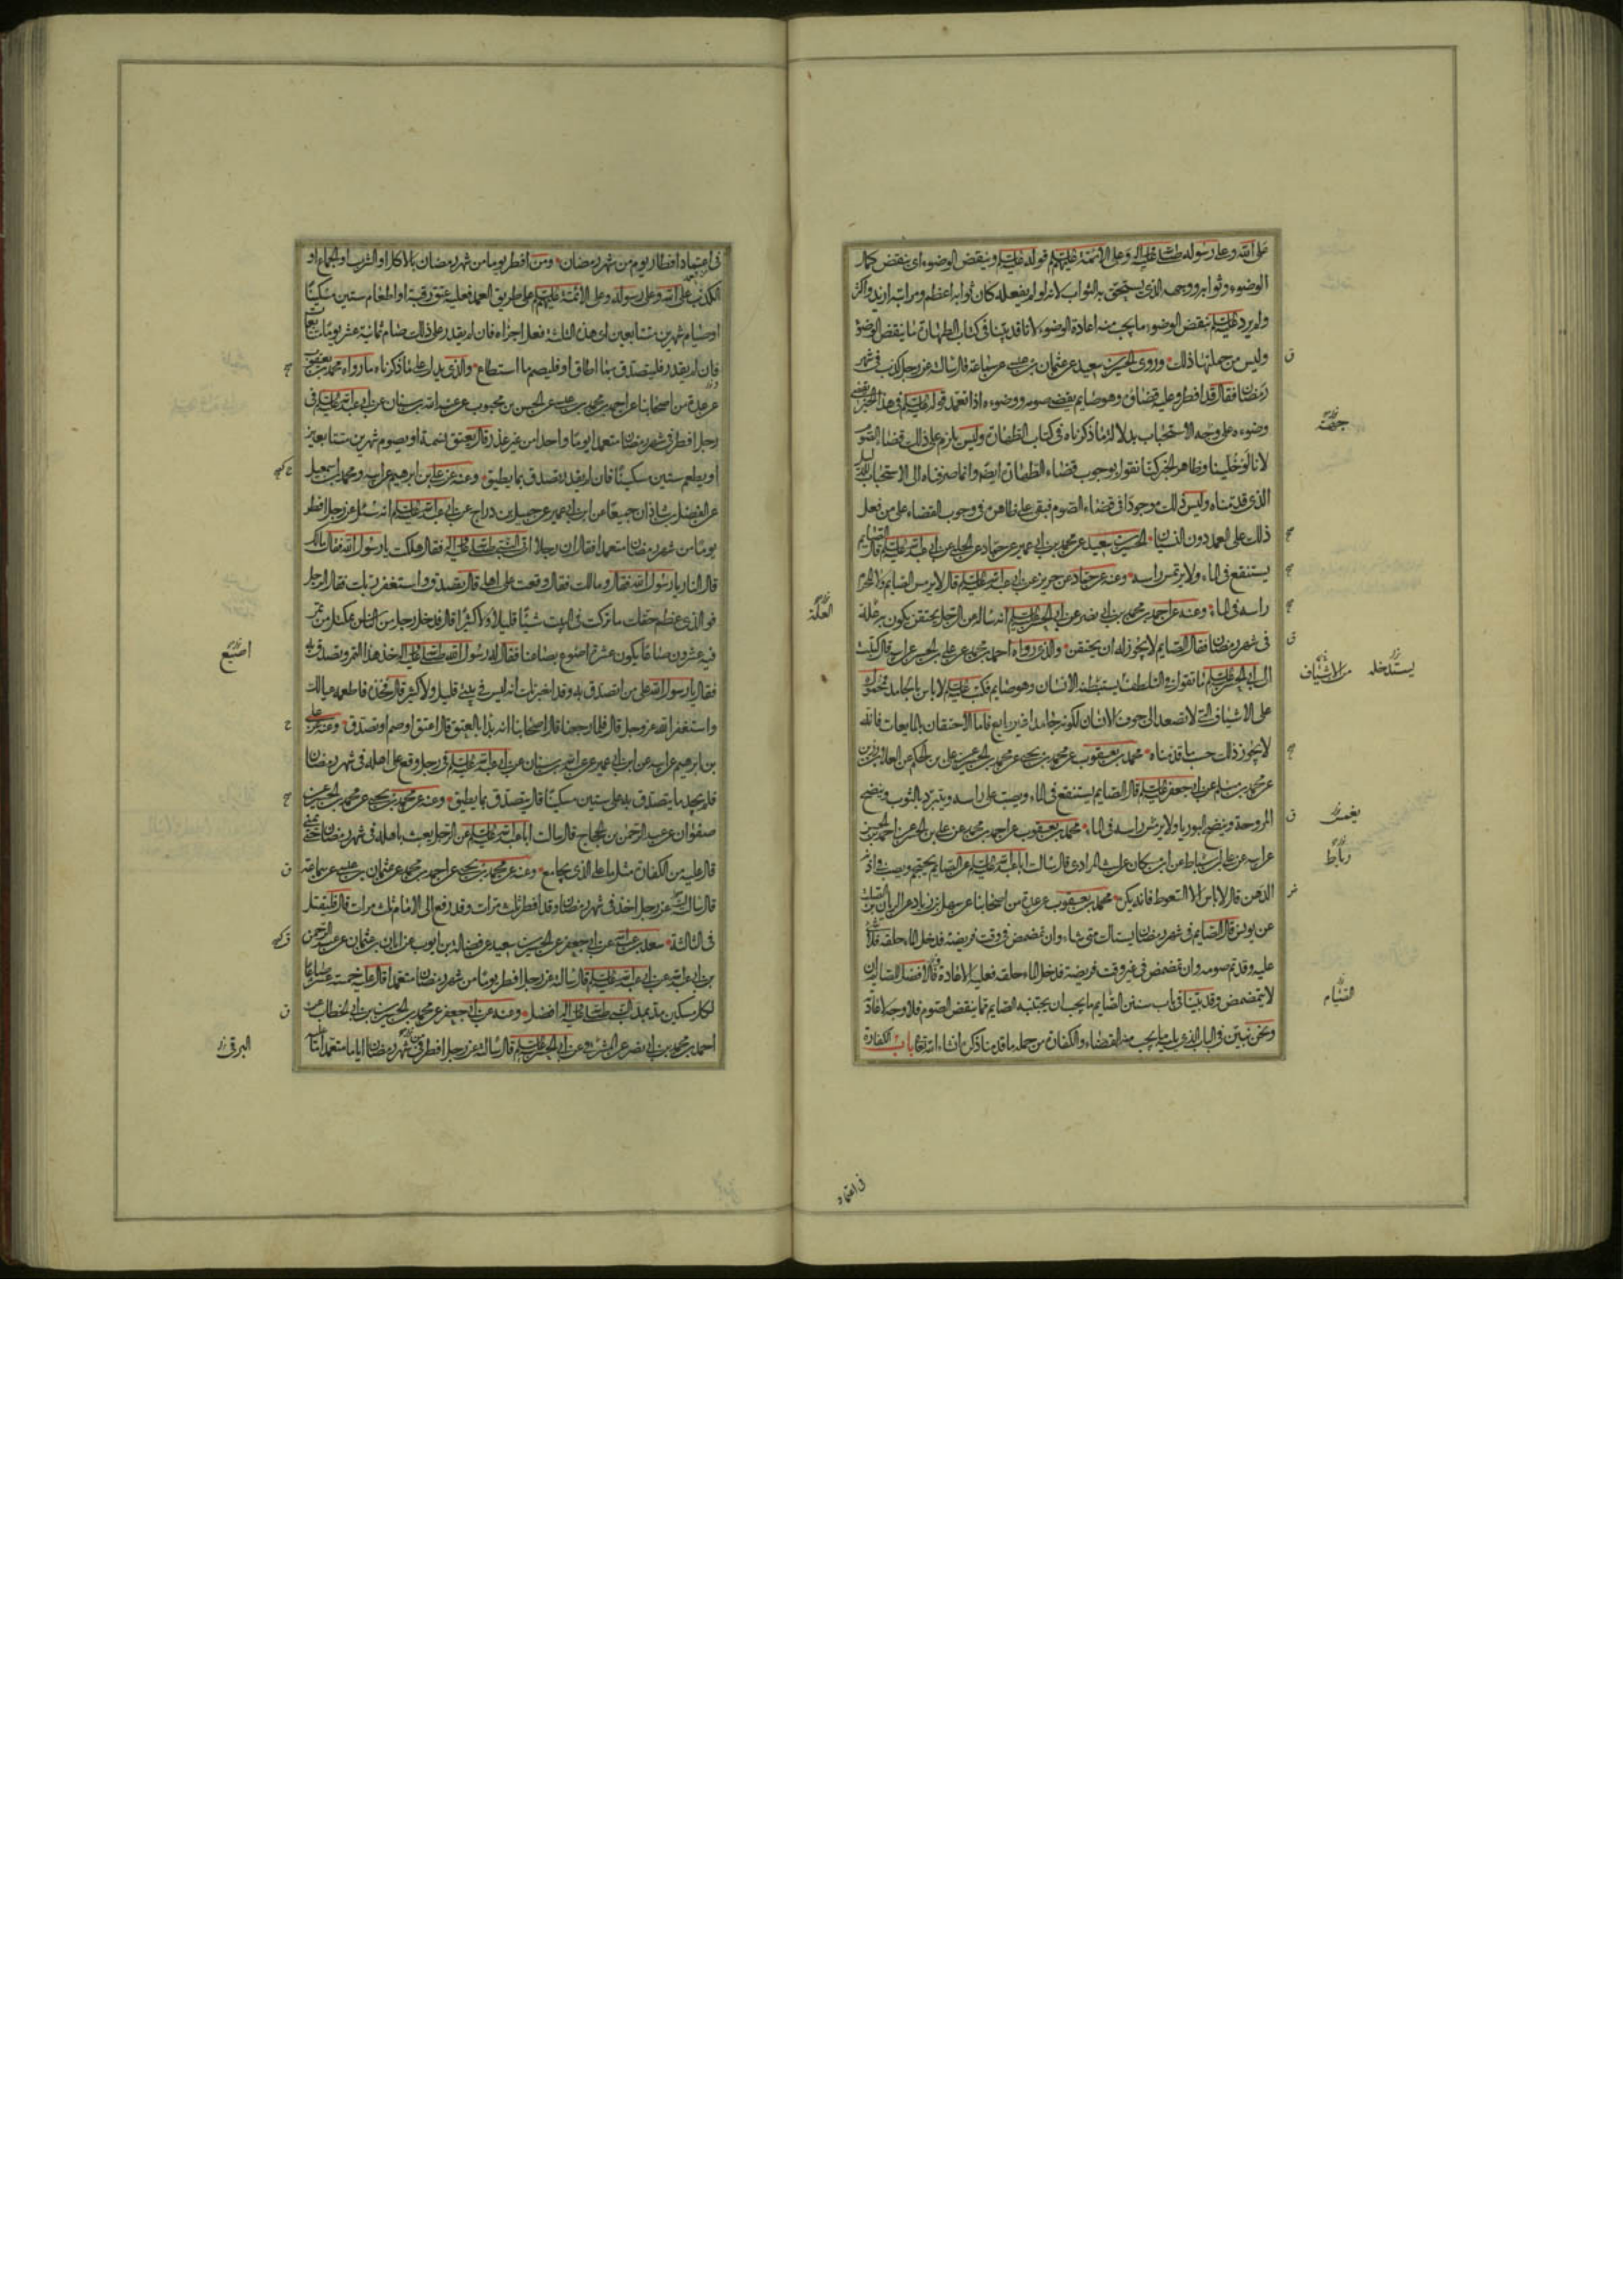 على الله وعلى رسوله صلى الله عليه واله وعلى الائمة عليهم السلام قوله عليه السلام وينقض الوضوء اى ينقض كمال
الوضوء وثوابه ووجهه الذى يستحق به الثواب لانه لو لم يفعله كان ثوابه اعظم ومراتبه ازيد واكثر
ولم يرد عليه السلام بنقض الوضوء ما يجب منه اعادة الوضوء لانا قد بينا فى كتاب الطهارة ما ينقض الوضوء
وليس من جملتها ذلك وروى الحسين بن سعيد عن عثمان بن عيسى عن سماعة قال سالته عن رجل كذب فى شهر
رمضان فقال قد افطر وعليه قضاؤه وهو صايم يقضى صومه ووضوءه اذا تعمد قوله عليه السلام فى هذا الخبر يقضى
وضوءه على وجه الاستحباب بدلالة ما ذكرناه فى كتاب الطهارة وليس يلزم على ذلك قضاء الصوم
لانا لو خلينا وظاهر الخبر كنا نقول بوجوب قضاء الطهارة ايضا وانما صرفناه الى الاستحباب للدليل
الذى قدمناه وليس ذلك موجودا فى قضاء الصوم فبقى على ظاهره فى وجوب القضاء على من فعل
ذلك على العمد دون النسيان الحسين بن سعيد عن محمد بن ابى عمير عن حماد عن الحلبى عن ابى عبد الله عليه السلام قال الصايم
يستنقع فى الماء ولا يرتمس راسه وعنه عن حماد عن حريز عن ابى عبد الله عليه السلام قال لا يرمس الصايم ولا المحرم
راسه فى الماء وعنه عن احمد بن محمد بن ابى نصر عن ابى الحسن عليه السلام انه ساله عن الرجل يحتقن يكون به علة
فى شهر رمضان فقال الصايم لا يجوز له ان يحتقن والذى رواه احمد بن محمد عن على بن الحسن عن ابيه قال كتبت
الى ابى الحسن عليه السلام ما تقول فى التلطف يستبطنه الانسان وهو صايم فكتب عليه السلام لا باس بالجامد محمول
على الاشياف التى لا تصعد الى جوف الانسان لكونه جامدا غير مايع فاما الاحتقان بالمايعات فانه
لا يجوز ذلك حسب ما قدمناه محمد بن يعقوب عن محمد بن يحيى عن محمد بن الحسين عن على بن الحكم عن العلا بن رزين
عن محمد بن مسلم عن ابى جعفر عليه السلام قال الصايم يستنقع فى الماء ويصب على راسه ويتبرد بالثوب وينضح
المروحة وينضح البوريا ولا يرمس راسه فى الماء محمد بن يعقوب عن احمد بن محمد عن على بن الحسن عن احمد بن الحسن
عن ابيه عن على بن اسباط عن ابن مسكان عن ليث المرادى قال سالت ابا عبد الله عليه السلام عن الصايم يحتجم ويصب فى اذنه
الدهن قال لا باس الا السعوط فانه يكره محمد بن يعقوب عن عدة من اصحابنا عن سهل بن زياد عن الريان بن الصلت
عن يونس قال الصايم فى شهر رمضان يستاك متى شاء وان تمضمض فى وقت فريضة فدخل الماء حلقه فلا شئ
عليه وقد تم صومه وان تمضمض فى غير وقت فريضة فدخل الماء حلقه فعليه الاعادة والافضل للصايم ان
لا يتمضمض وقد بينا فى باب سنن الصيام ما يجب ان يجتنبه الصايم مما ينقض الصوم فلا وجه لاعادته
ونحن نبين فى الباب الذى يليه ما يجب منه القضاء والكفارة من جملة ما قدمنا ذكره ان شاء الله تعالى باب الكفارة
جهة
العلة
يستدخله
من الاشياف
يغمس
رباط
الصيام
فى اعتماد
فى اعتماد افطار يوم من شهر رمضان ومن افطر يوما من شهر رمضان بالاكل او الشرب او الجماع او
الكذب على الله وعلى رسوله وعلى الائمة عليهم السلام على طريق العمد فعليه عتق رقبة او اطعام ستين مسكينا
او صيام شهرين متتابعين اى هذه الثلثة فعل اجزاه فان لم يقدر على ذلك صام ثمانية عشر يوما متتابعات
فان لم يقدر فليتصدق بما اطاق او فليصم ما استطاع والذى يدل على ما ذكرناه ما رواه محمد بن يعقوب
عن عدة من اصحابنا عن احمد بن محمد بن عيسى عن الحسن بن محبوب عن عبد الله بن سنان عن ابى عبد الله عليه السلام فى
رجل افطر فى شهر رمضان متعمدا يوما واحدا من غير عذر قال يعتق نسمة او يصوم شهرين متتابعين
او يطعم ستين مسكينا فان لم يقدر تصدق بما يطيق وعنه عن على بن ابرهيم عن ابيه ومحمد بن اسمعيل
عن الفضل بن شاذان جميعا عن ابن ابى عمير عن جميل بن دراج عن ابى عبد الله عليه السلام انه سئل عن رجل افطر
يوما من شهر رمضان متعمدا فقال ان رجلا اتى النبى صلى الله عليه واله فقال هلكت يا رسول الله فقال مالك
قال النار يا رسول الله فقال ومالك فقال وقعت على اهلى قال تصدق واستغفر ربك فقال الرجل
فو الذى عظم حقك ما تركت فى البيت شيئا قليلا ولا كثيرا قال فدخل رجل من الناس بمكتل من تمر
فيه عشرون صاعا يكون عشرة اصوع بصاعنا فقال له رسول الله صلى الله عليه واله خذ هذا التمر وتصدق به
فقال يا رسول الله على من اتصدق به وقد اخبرتك انه ليس فى بيتى قليل ولا كثير قال فخذه فاطعمه عيالك
واستغفر الله عز وجل قال فلما رجعنا قال اصحابنا انه بدا بالعتق قال اعتق او صم او تصدق وعنه عن على
بن ابرهيم عن ابيه عن ابن ابى عمير عن عبد الله بن سنان عن ابى عبد الله عليه السلام فى رجل وقع على اهله فى شهر رمضان
فلم يجد ما يتصدق به على ستين مسكينا قال يتصدق بما يطيق وعنه عن محمد بن يحيى عن محمد بن الحسين عن
صفوان عن عبد الرحمن بن الحجاج قال سالت ابا عبد الله عليه السلام عن الرجل يعبث باهله فى شهر رمضان حتى يمنى
قال عليه من الكفارة مثل ما على الذى يجامع وعنه عن محمد بن يحيى عن احمد بن محمد عن عثمان بن عيسى عن سماعة
قال سالته عن رجل اخذ فى شهر رمضان وقد افطر ثلث مرات وقد رفع الى الامام ثلث مرات قال فليقتل
فى الثالثة سعد بن عبد الله عن ابى جعفر عن الحسين بن سعيد عن فضالة بن ايوب عن ابان بن عثمان عن عبد الرحمن
بن ابى عبد الله عن ابى عبد الله عليه السلام قال سالته عن رجل افطر يوما من شهر رمضان متعمدا قال عليه خمسة عشر صاعا
لكل مسكين مد بمد النبى صلى الله عليه واله افضل وعنه عن ابى جعفر عن محمد بن الحسين بن ابى الخطاب عن
احمد بن محمد بن ابى نصر عن المشرقى عن ابى الحسن عليه السلام قال سالته عن رجل افطر من شهر رمضان اياما متعمدا ما عليه
اصيع
البرقى